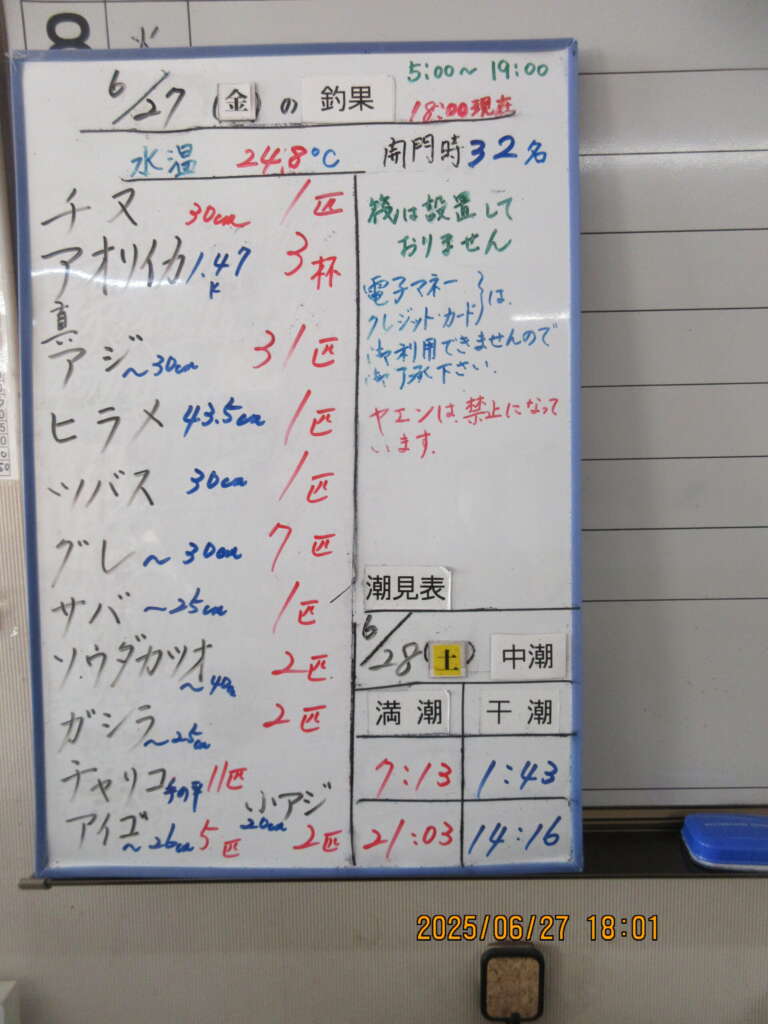 8 火
6/27(金)の 釣果
5:00～19:00
18:00現在
水温 24.8℃ 開門時32名
チヌ 30cm 1匹
アオリイカ 1.47K 3杯
真アジ ～30cm 31匹
ヒラメ 43.5cm 1匹
ツバス 30cm 1匹
グレ ～30cm 7匹
サバ ～25cm 1匹
ソウダカツオ ～40cm 2匹
ガシラ ～25cm 2匹
チャリコ 手の平 11匹
アイゴ ～26cm 5匹
小アジ 20cm 2匹
筏は設置して
おりません
電子マネー
クレジット・カード}は
御利用できませんので
御了承下さい.
ヤエンは禁止になって
います.
潮見表
6/28(土) 中潮
満潮 干潮
7:13 1:43
21:03 14:16
2025/06/27 18:01